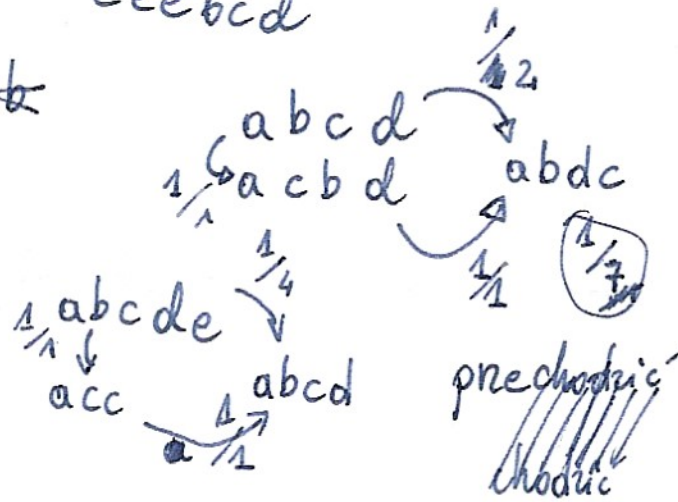 eee bcd
b
1/2
abcd
acbd
1/1
abdc
1/1
1/7
1/4
1/1
abcde
acc
abcd
a 1/1
przechodzić
chodzić